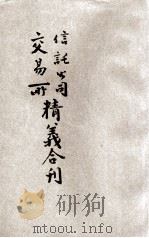 信託公司
交易所精義合刊
www.doc88.com